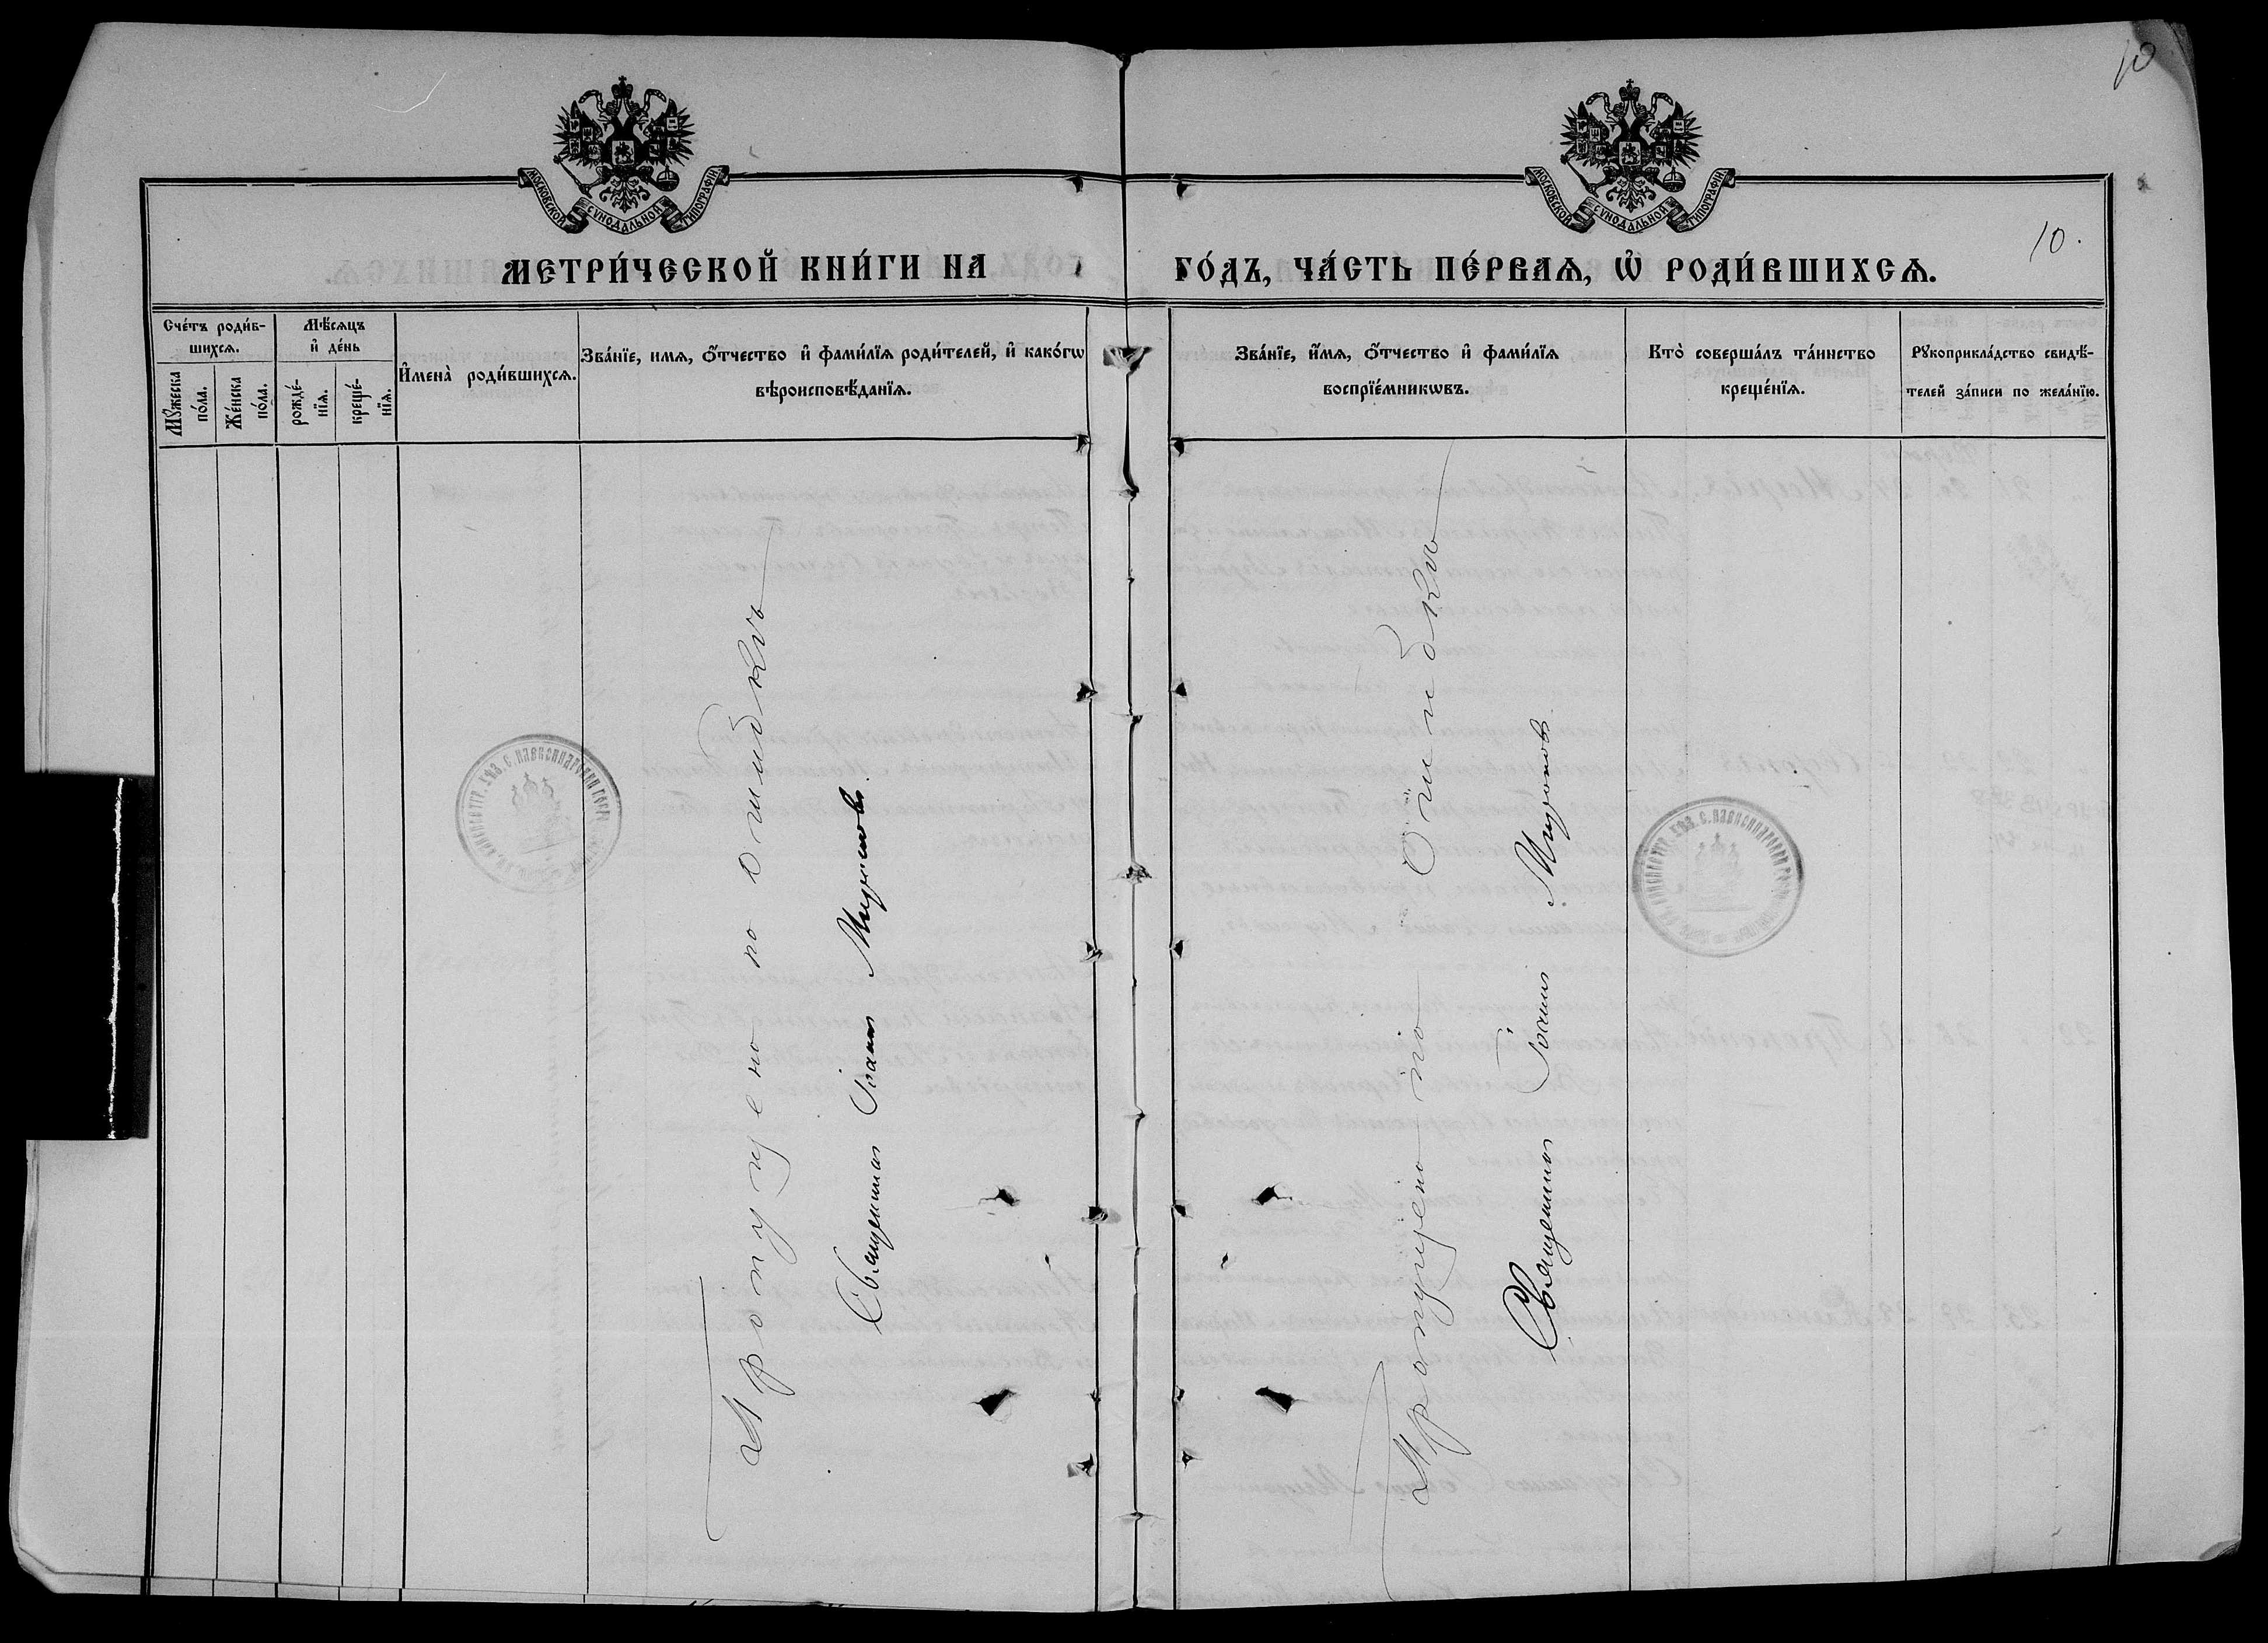 10
МОСКОВСКОЙ СѴНОДАЛЬНОЙ ТИПОГРАФІИ
МОСКОВСКОЙ СѴНОДАЛЬНОЙ ТИПОГРАФІИ
10.
МЕТРИ́ЧЕСКОЙ КНИ́ГИ НА
ГО́ДЪ, ЧА́СТЬ ПЕ́РВАѦ, Ѡ҆ РОДИ́ВШИХСѦ.
Сче́тъ роди́в-
шихсѧ.
Мꙋ́жеска
по́ла.
Же́нска
по́ла.
Мѣ́сѧцъ
и҆ де́нь
рожде́-
нїѧ.
креще́-
нїѧ.
И҆мена̀ роди́вшихсѧ.
Зва́нїе, имѧ, ѻ҆́тчество и҆ фами́лїѧ роди́телей, и҆ како́гѡ
вѣроисповѣ́данїѧ.
Зва́нїе, и҆́мѧ, ѻ҆́тчество и҆ фами́лїѧ
воспрїе́мникѡвъ.
Кто̀ соверша́лъ та́инство
креще́нїѧ.
Рꙋкоприкла́дство свидѣ́-
телей за́писи по жела́нїю.
Пропущено по ошибкѣ
Священник Іоанн
Пропущено по ошибкѣ
Священник Іоанн